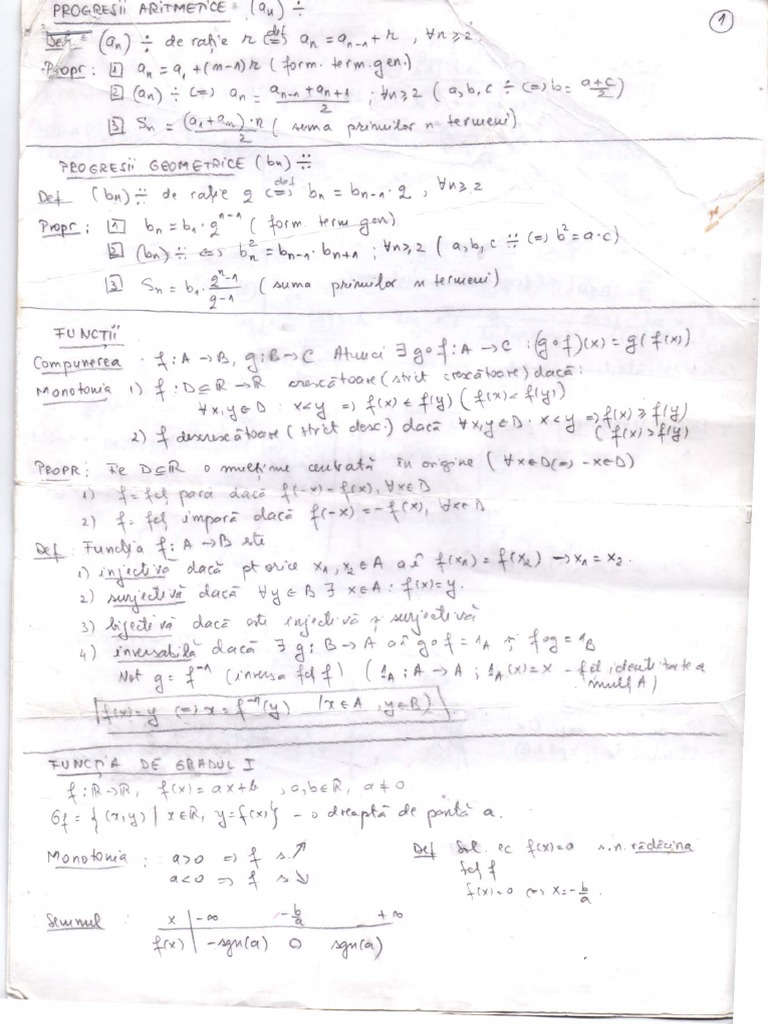 PROGRESII ARITMETICE (aₙ) ÷
①
Def: (aₙ) ÷ de rație r ⇔(def) aₙ = aₙ₋₁ + r, ∀n≥2
Propr: [1] aₙ = a₁ + (n-1)r (form. term. gen.)
[2] (aₙ) ÷ ⇔ aₙ = (aₙ₋₁ + aₙ₊₁)/2 ; ∀n≥2 (a, b, c ÷ ⇔ b = (a+c)/2)
[3] Sₙ = (a₁+aₙ)·n/2 (suma primilor n termeni)
PROGRESII GEOMETRICE (bₙ) ÷÷
Def (bₙ) ÷÷ de rație q ⇔(def) bₙ = bₙ₋₁ · q, ∀n≥2
Propr: [1] bₙ = b₁ · qⁿ⁻¹ (form. term gen)
[2] (bₙ) ÷÷ ⇔ bₙ² = bₙ₋₁ · bₙ₊₁ ; ∀n≥2 (a, b, c ÷÷ ⇔ b² = a·c)
[3] Sₙ = b₁ · (qⁿ-1)/(q-1) (suma primilor n termeni)
FUNCȚII
Compunerea : f: A→B, g: B→C Atunci ∃ g∘f: A→C : (g∘f)(x) = g(f(x))
Monotonia 1) f: D⊆R→R crescătoare (strict crescătoare) dacă:
∀x,y∈D : x<y ⇒ f(x) ≤ f(y) (f(x) < f(y))
2) f descrescătoare (strict desc.) dacă ∀x,y∈D : x<y ⇒ f(x) ≥ f(y)
(f(x) > f(y)
PROPR: Fie D⊆R o mulțime centrată în origine (∀x∈D ⇔ -x∈D)
1) f = fcț pară dacă f(-x) = f(x), ∀x∈D
2) f = fcț impară dacă f(-x) = -f(x), ∀x∈D
Def: Funcția f: A→B este
1) injectivă dacă pt orice x₁, x₂∈A aî f(x₁) = f(x₂) → x₁ = x₂.
2) surjectivă dacă ∀y∈B ∃ x∈A : f(x) = y.
3) bijectivă dacă este injectivă și surjectivă
4) inversabilă dacă ∃ g: B→A aî g∘f = 1_A și f∘g = 1_B
Not g = f⁻¹ (inversa fcț f) (1_A : A→A ; 1_A(x) = x - fcț identitate a
mulț A)
f(x) = y ⇔ x = f⁻¹(y) (x∈A, y∈B)
FUNCȚIA DE GRADUL I
f: R→R, f(x) = ax+b, a,b∈R, a≠0
Gf = {(x,y) | x∈R, y=f(x)} - o dreaptă de pantă a.
Monotonia : a>0 ⇒ f s.↗
a<0 ⇒ f s↘
Def Sol. ec f(x)=0 s.n. rădăcina
fcț f
f(x)=0 ⇔ x = -b/a.
Semnul : x | -∞ -b/a +∞
f(x) | -sgn(a) 0 sgn(a)